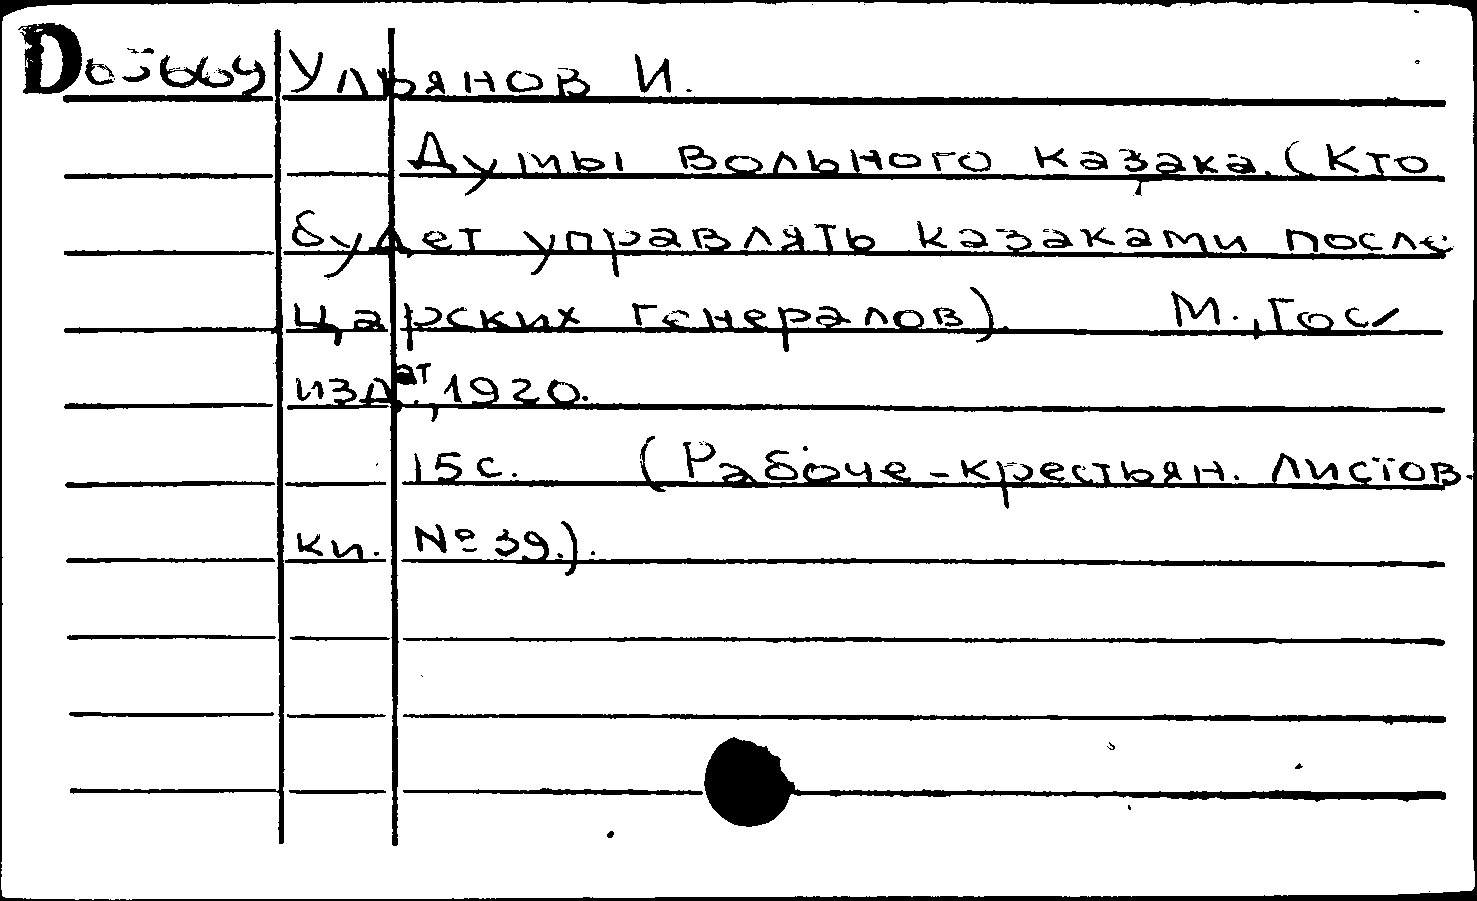 Ульянов И.
Думы вольного казака. (Кто
будет управлять казаками после
царских генералов). М., Гос/
издат., 1920.
15 с. (Рабоче-крестьян. листов-
ки. № 39.).